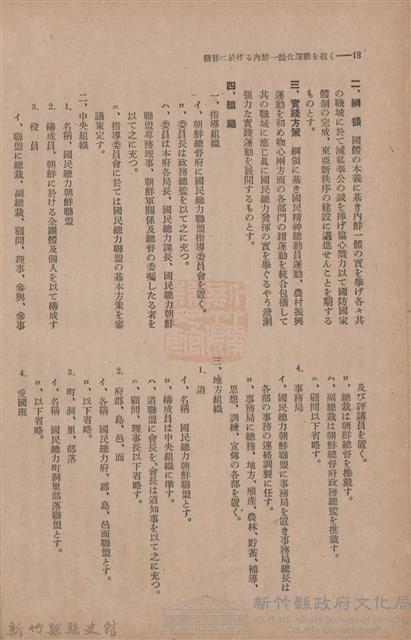 朝鮮に於ける內鮮一體化運動を覗く——18
二、綱領 國體の本義に基き內鮮一體の實を擧げ各々其
の職域に於て滅私奉公の誠を捧げ協心戮力以て國防國家
體制の完成、東亞新秩序の建設に邁進せんことを期する
ものとす。
三、實踐方策 綱領に基き國民精神總動員運動、農村振興
運動を初め物心兩方面の各部門の諸運動を統合包攝して
其の職域に應じ眞に國民總力發揮の實を擧ぐるやう潑溂
强力な實踐運動を展開するものとす。
四、組織
一、指導組織
イ、朝鮮總督府に國民總力朝鮮聯盟指導委員會を置く。
ロ、委員長は政務總監を以て之に充つ。
ハ、委員は本府各局長、國民總力課長、國民總力朝鮮
聯盟專務理事、朝鮮軍關係及總督の委囑したる者を
以て之に充つ。
ニ、指導委員會に於ては國民總力聯盟の基本方策を審
議策定す。
二、中央組織
1.名稱 國民總力朝鮮聯盟
2.構成員、朝鮮に於ける全團體及個人を以て構成す
3.役員
イ、聯盟に總裁、副總裁、顧問、理事、參與、參事
及び評議員を置く。
ロ、總裁は朝鮮總督を推戴す。
ハ、副總裁は朝鮮總督府政務總監を推戴す。
ニ、顧問以下省略す。
4.事務局
イ、國民總力朝鮮聯盟に事務局を置き事務局總長は
各部の事務の連絡調製に任す。
ロ、事務局に總務、地方、殖產、農林、貯蓄、補導、
思想、訓練、宣傳の各部を置く。
三、地方組織
1.道
イ、名稱 國民總力朝鮮聯盟とす。
ロ、構成員は中央組織に準す。
ハ、道聯盟に會長を、會長は道知事を以て之に充つ。
ニ、顧問、理事長以下省略す。
2.府郡、島、邑、面
イ、各稱 國民總力府、郡、島、邑面聯盟とす。
ロ、以下省略。
3.町、洞、里、部落
イ、名稱 國民總力町洞里部落聯盟とす。
ロ、以下省略す。
4.愛國班
新竹縣縣史館
新竹縣政府文化局
Cultural Affairs Bureau of Hsinchu
County Government